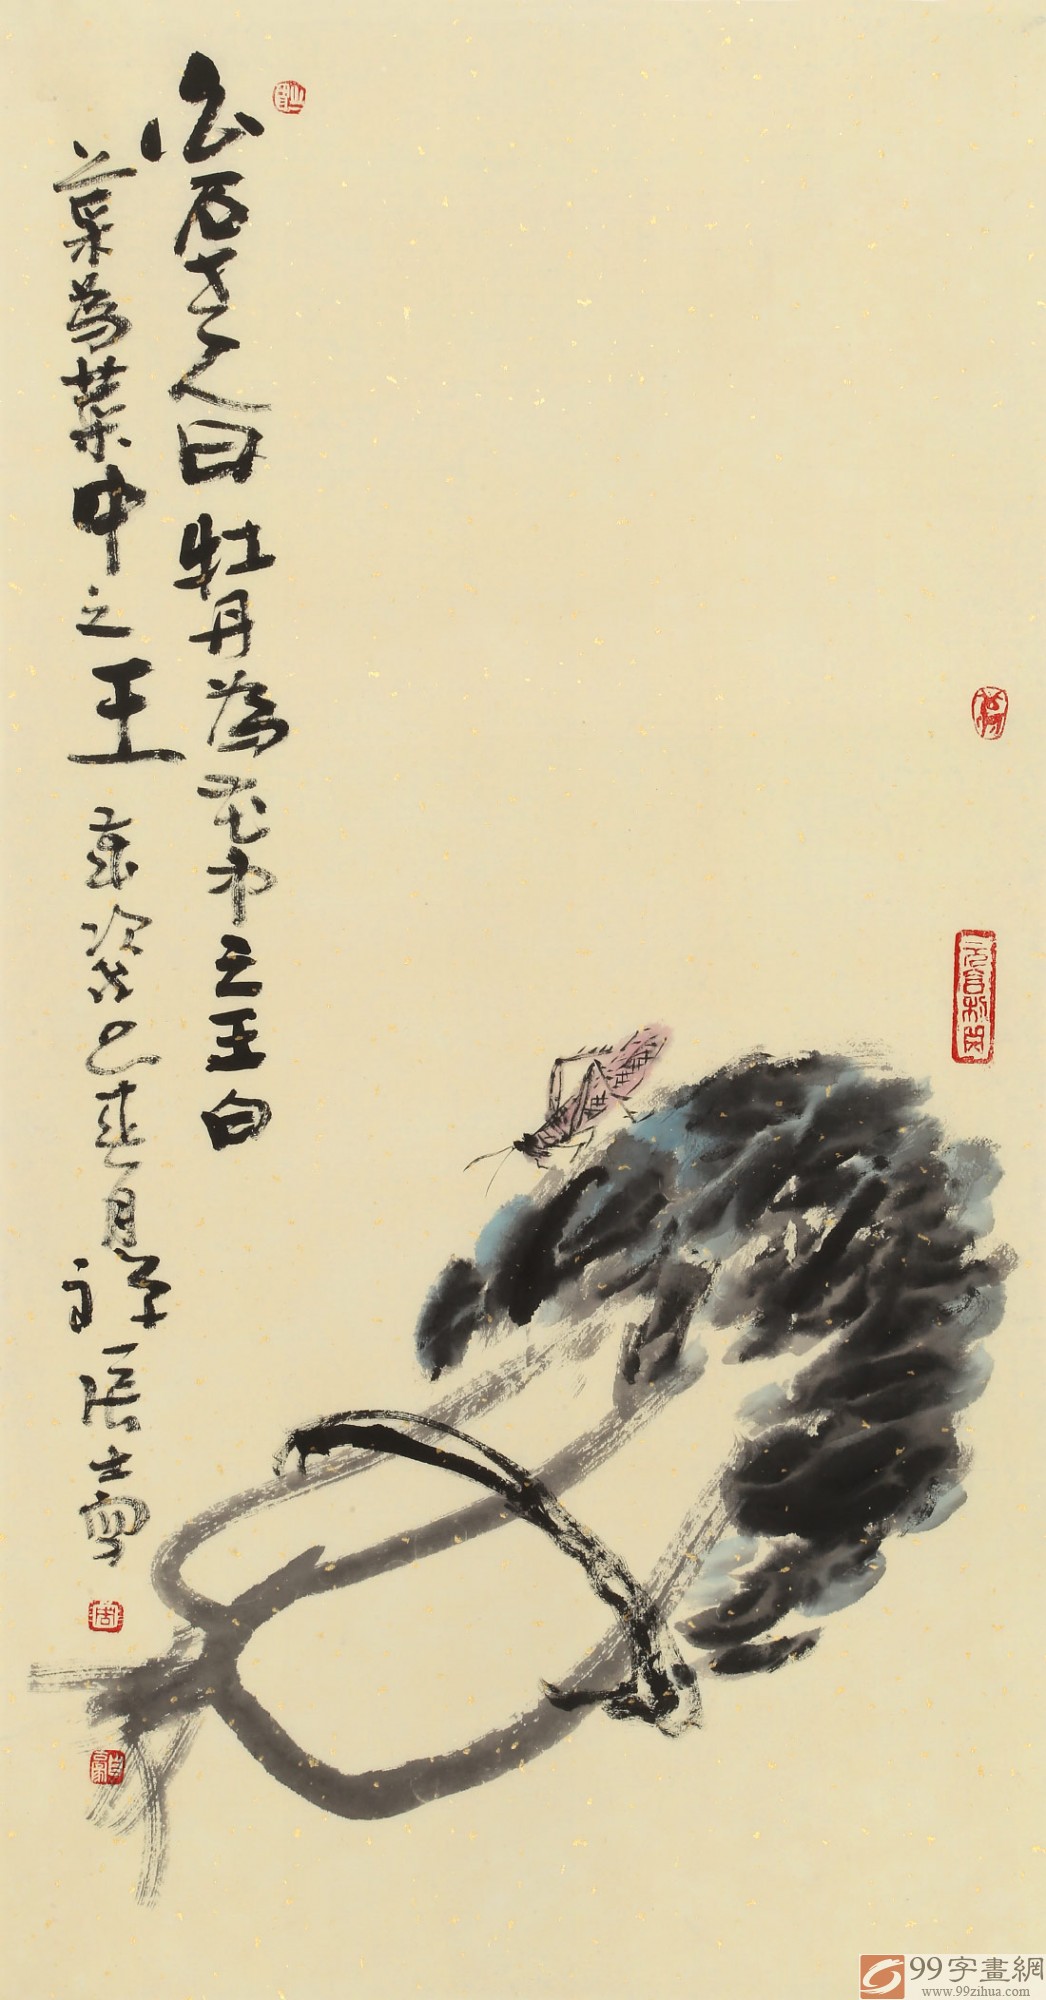 白石老人曰牡丹為花中之王白
菜為菜中之王 歲次癸巳春月 張士
99字畫網
www.99zihua.com